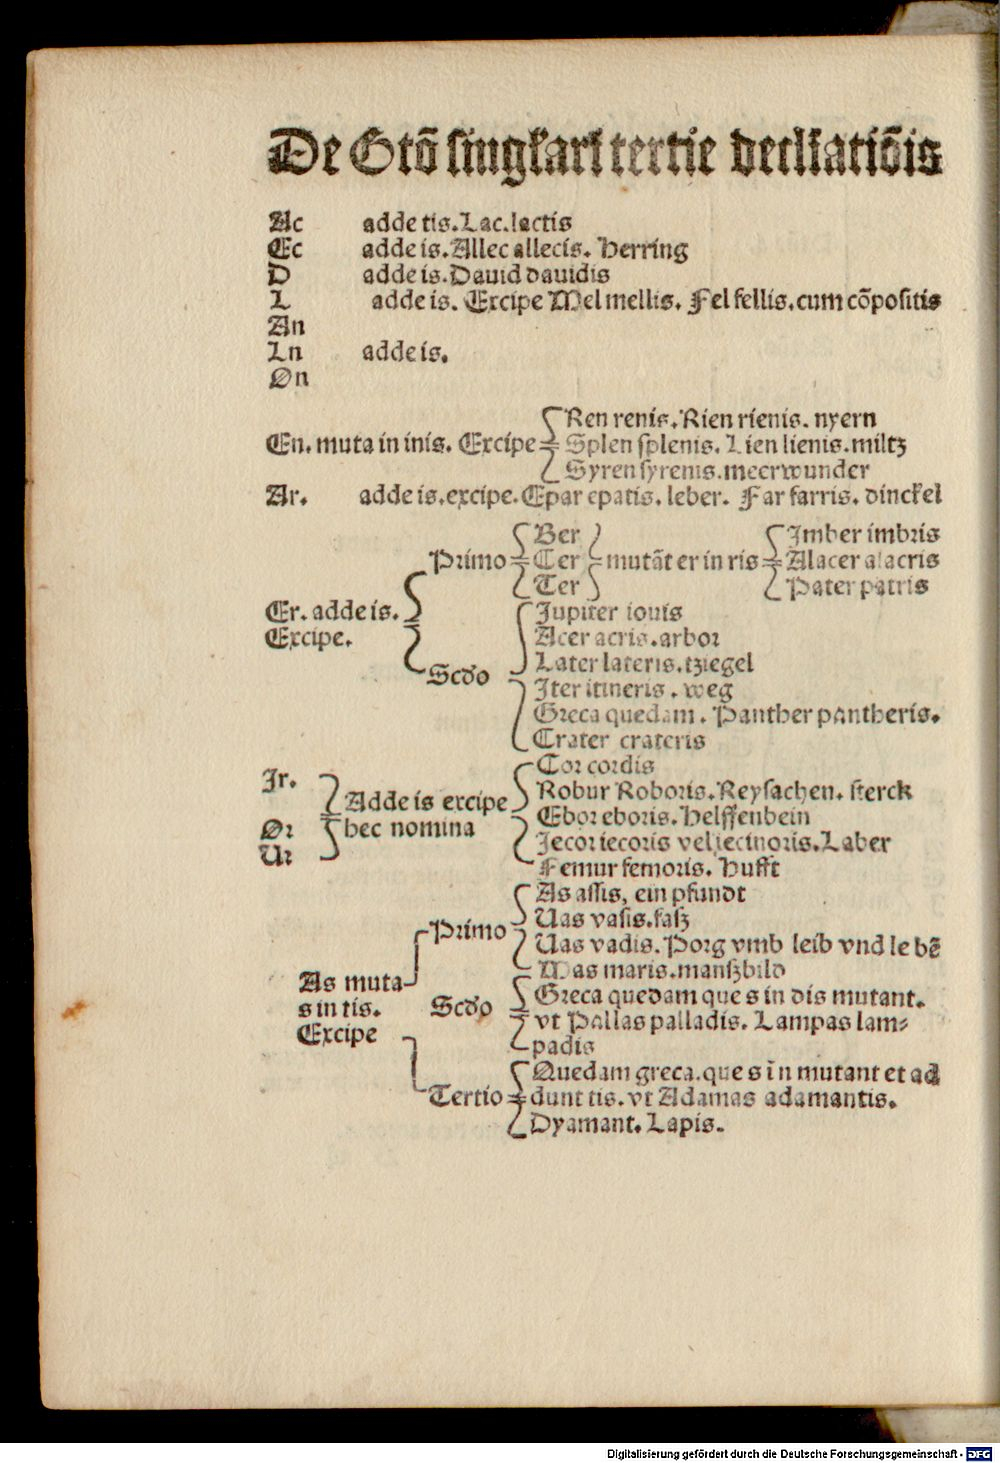 De Gtō singkari tertie declīatiōis
Ac adde tis. Lac. lactis
Ec adde is. Allec allecis. Herring
D adde is. Dauid dauidis
L adde is. Excipe Mel mellis. Fel fellis. cum cōpositis
An
In adde is.
On
Ren renis. Rien rienis. nyern
En. muta in inis. Excipe Splen splenis. Lien lienis. miltz
Syren syrenis. meerwunder
Ar. adde is. excipe. Epar epatis. leber. Far farris. dinckel
Ber Imber imbris
Primo Cer mutāt er in ris Alacer alacris
Ter Pater patris
Er. adde is. Jupiter iouis
Excipe. Acer acris. arbor
Later lateris. tziegel
Scdo Iter itineris. weg
Greca quedam. Panther pantheris.
Crater crateris
Cor cordis
Ir. Robur Roboris. Reysachen. sterck
Adde is excipe Ebor eboris. Helffenbein
Or hec nomina Jecor iecoris vel iecinoris. Laber
Ur Femur femoris. Hufft
As assis, ein pfundt
Primo Uas vasis. fasz
Uas vadis. Porg vmb leib vnd lebē
As muta Mas maris. manszbild
s in tis. Scdo Greca quedam que s in dis mutant.
Excipe vt Pallas palladis. Lampas lam-
padis
Quedam greca. que s in n mutant et ad
Tertio dunt tis. vt Adamas adamantis.
Dyamant. Lapis.
Digitalisierung gefördert durch die Deutsche Forschungsgemeinschaft - DFG